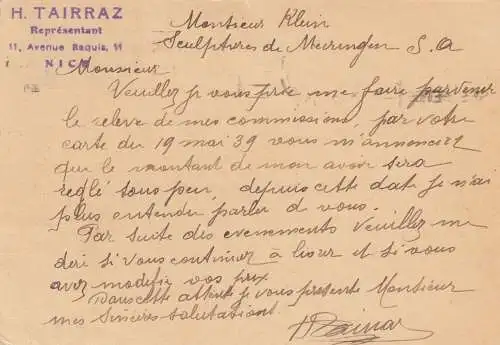 H. TAIRRAZ
Représentant
11, Avenue Baquis, 11
NICE
Monsieur Klein
Sculptures de Meiringen S.A
Monsieur
Veuillez je vous prie me faire parvenir
le relevé de mes commissions, par votre
carte du 19 mai 39 vous m'annonciez
que le montant de mon avoir sera
réglé sous peu, depuis cette date je n'ai
plus entendu parler de vous.
Par suite des evenements veuillez me
dire si vous continuez à livrer et si vous
avez modifié vos prix
Dans cette attente je vous présente Monsieur
mes sincères salutations.